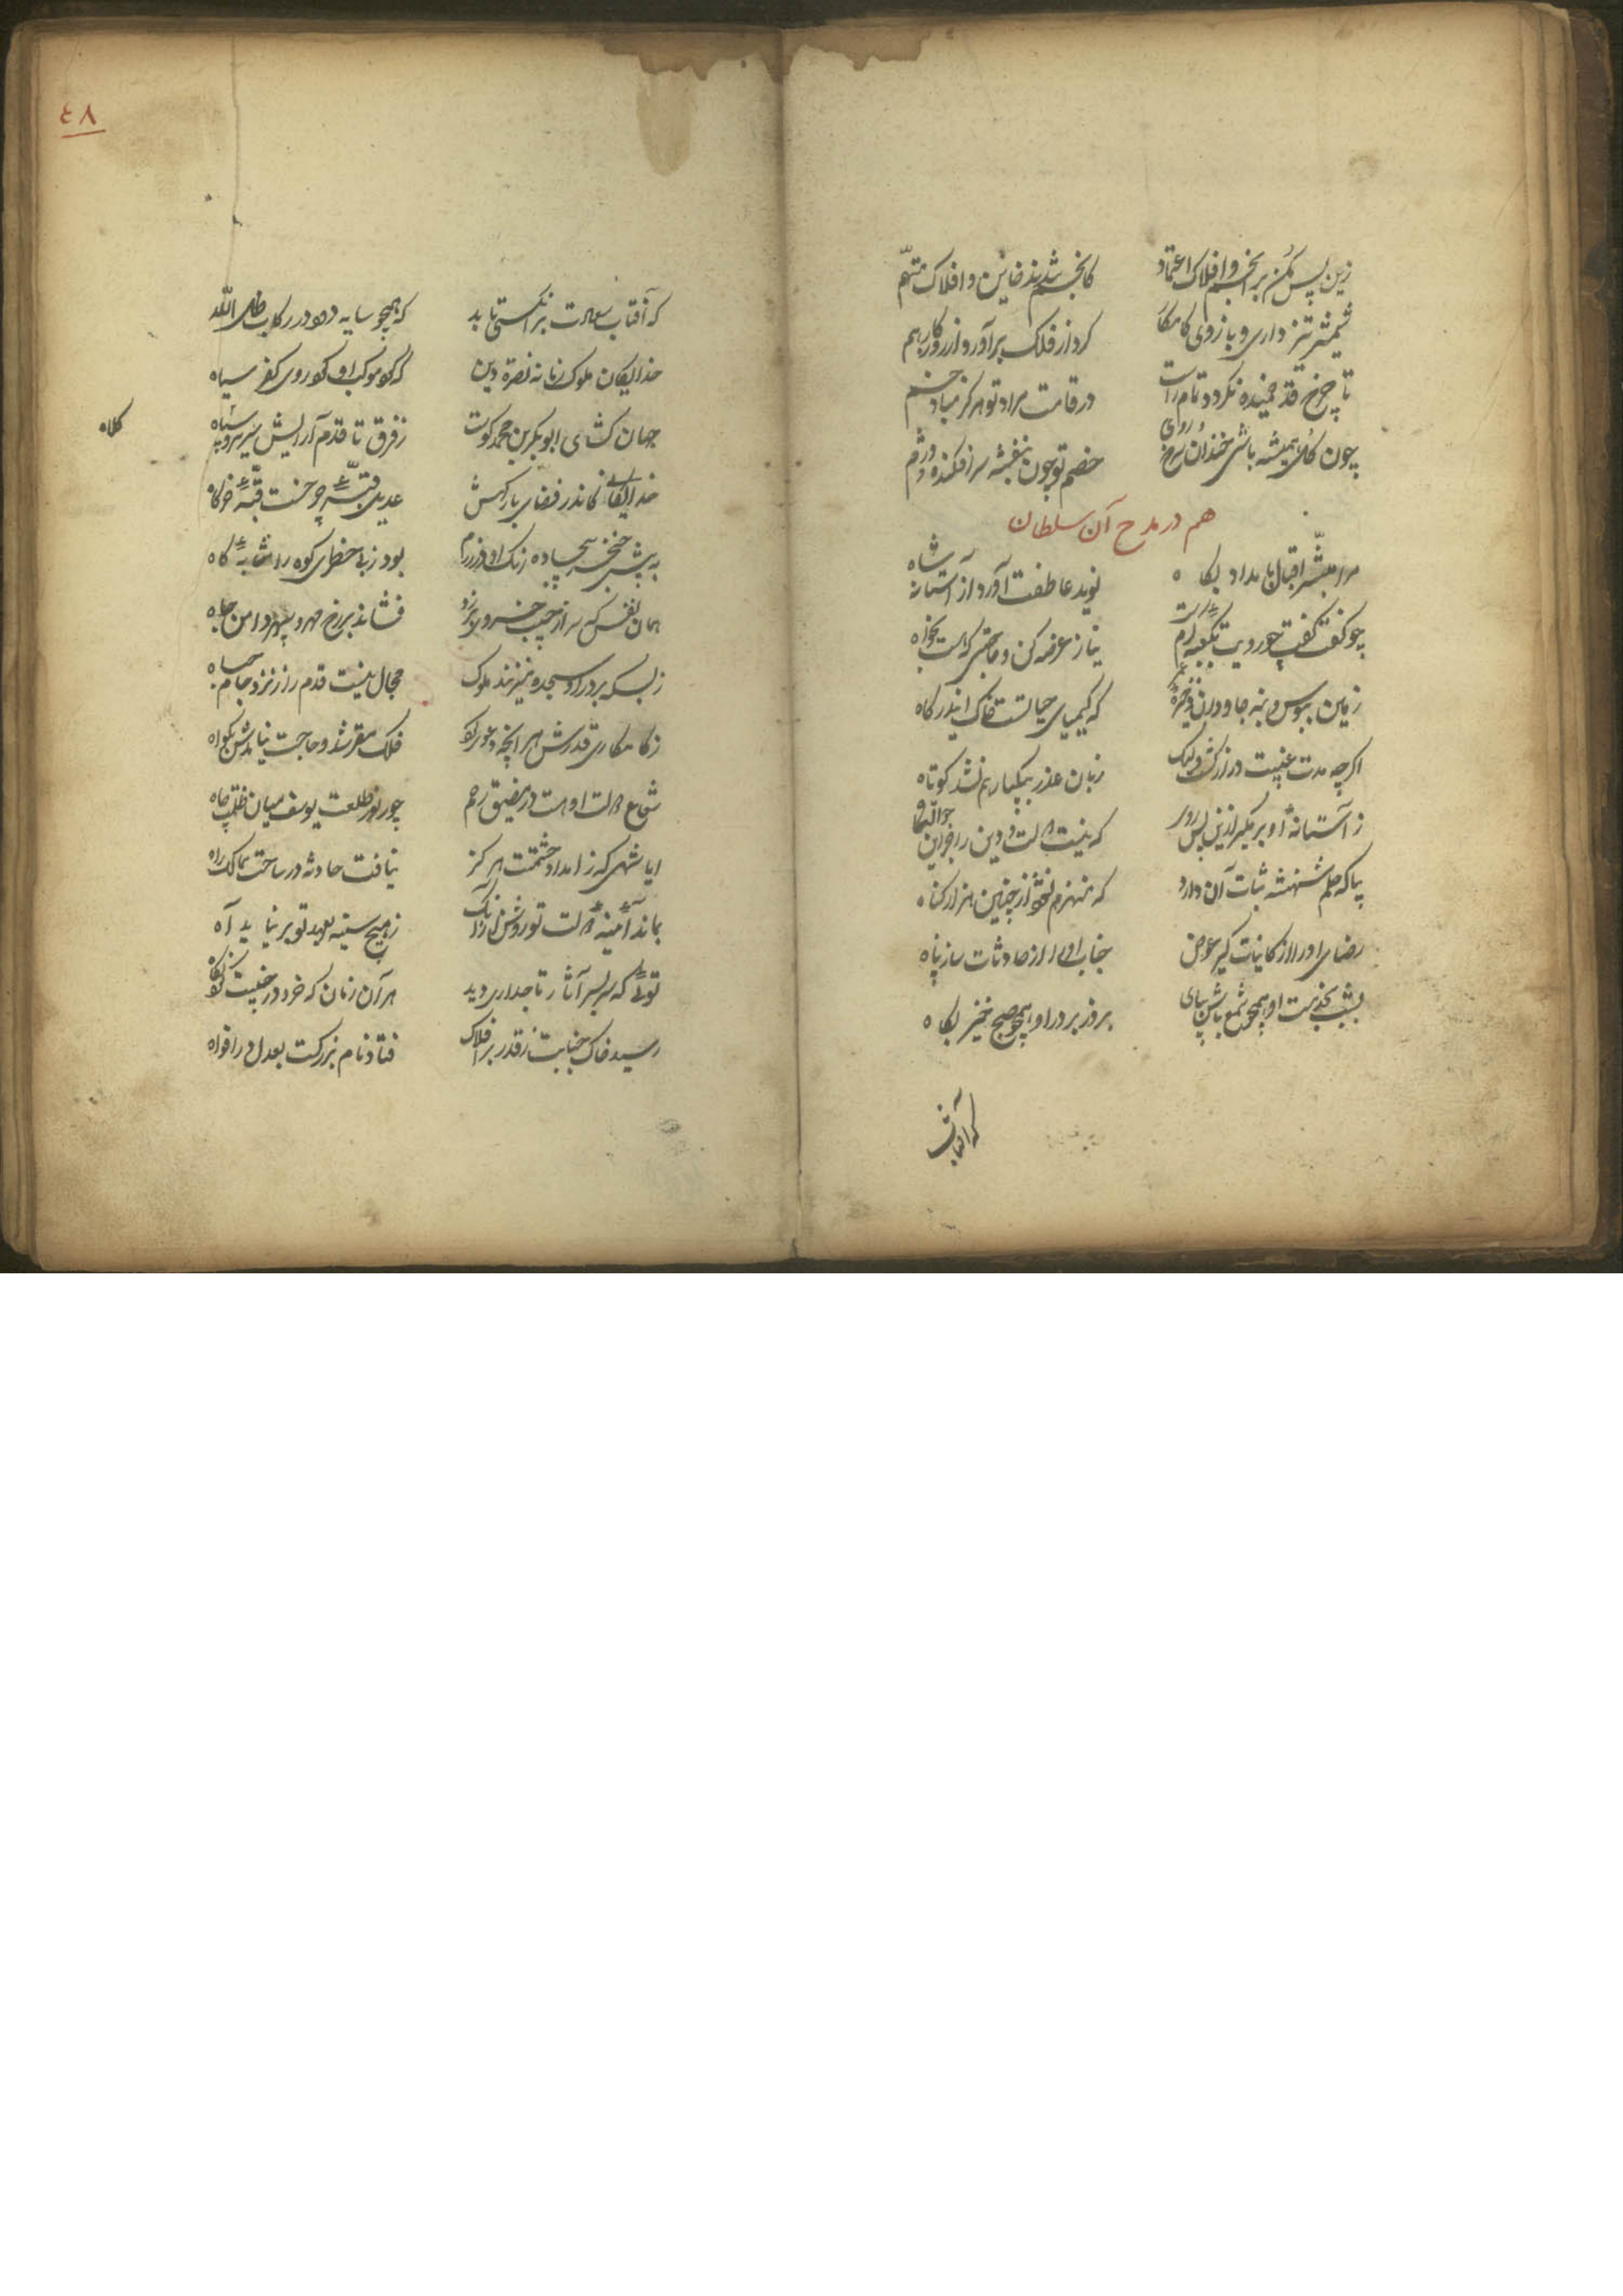 زین پس مکن بر انجم و افلاک اعتماد
کانجم شدند خائن و افلاک متهم
شمشیر تیز داری و بازوی کامکار
کرد از فلک برآور و از روزکار هم
تا چرخ قد خمیده نکردد تمام راست
در قامت مراد تو هرکز مباد خم
چون کل همیشه باشی خندان و سرخ روی
خصم تو چون بنفشه سرافکنده و دژم
هم در مدح آن سلطان
مرا مبشر اقبال بامداد پکاه
نوید عاطفت آورد از آستانه شاه
چو کفت کفت چو رویت بکعبه کرم است
نیاز عرضه کن و حاجتی که هست بخواه
زمین ببوس و بنه جاودان ذخیره عمر
که کیمیای حیاتست خاک این درکاه
اکرچه مدت غیبت دراز کشت ولیک
زبان عذر بیکبار هم نشد کوتاه
ز آستانه او بر مکیر ازین پس روی
که نیست دولت و دین را جز این حوالتکاه
بیا که حلم شهنشه ثبات آن دارد
که منهزم نشود از چنین هزار کناه
رضای او را از کاینات کیر عوض
جناب او را از حادثات ساز پناه
بشب بخدمت او همچو شمع باش بپای
بروز بر در او همچو صبح خیز پکاه
که آفتاب
٤٨
که آفتاب سعادت بر آنکسی تابد
که همچو سایه دود در رکاب ظل الله
خدایکان ملوک زمانه نصرة دین
که کو موکب او کرد روی کفر سیاه
جهان کشای ابوبکر بن محمد کوست
ز فرق تا قدم آرایش سریر و سپاه
کلاه
خدایکانی کاندر فضای بارکهش
عدیل قبه چرخست قبه خرکاه
به پیش خنجر بیجاده رنک او در رزم
بود ز بی خطری کوه را مثابه کاه
همان نفس که سر از جیب خسروی برزد
فشاند بر رخ مهر و سپهر دامن جاه
ز بسکه بر در او سجده میبرند ملوک
مجال نیست قدم را ز نزد جام جباه
ز کامکاری قدرش هر آنچه دعوی کرد
فلک مقر شد و حاجت نیامدش بکواه
شعاع دولت او هست در مضیق رحم
چو نور طلعت یوسف میان ظلمت چاه
ایا شهی که ز امداد حشمتت هرکز
نیافت حادثه در ساحت ممالک راه
بماند آینه دولت تو روشن از آنک
ز هیچ سینه بعهد تو بر نیاید آه
تویی که بر سر آثار تاجداری دید
هر آن زمان که خرد در جبینت کرد نکاه
رسید خاک جنابت ز قدر بر افلاک
فتاد نام بزرکت بعدل در افواه